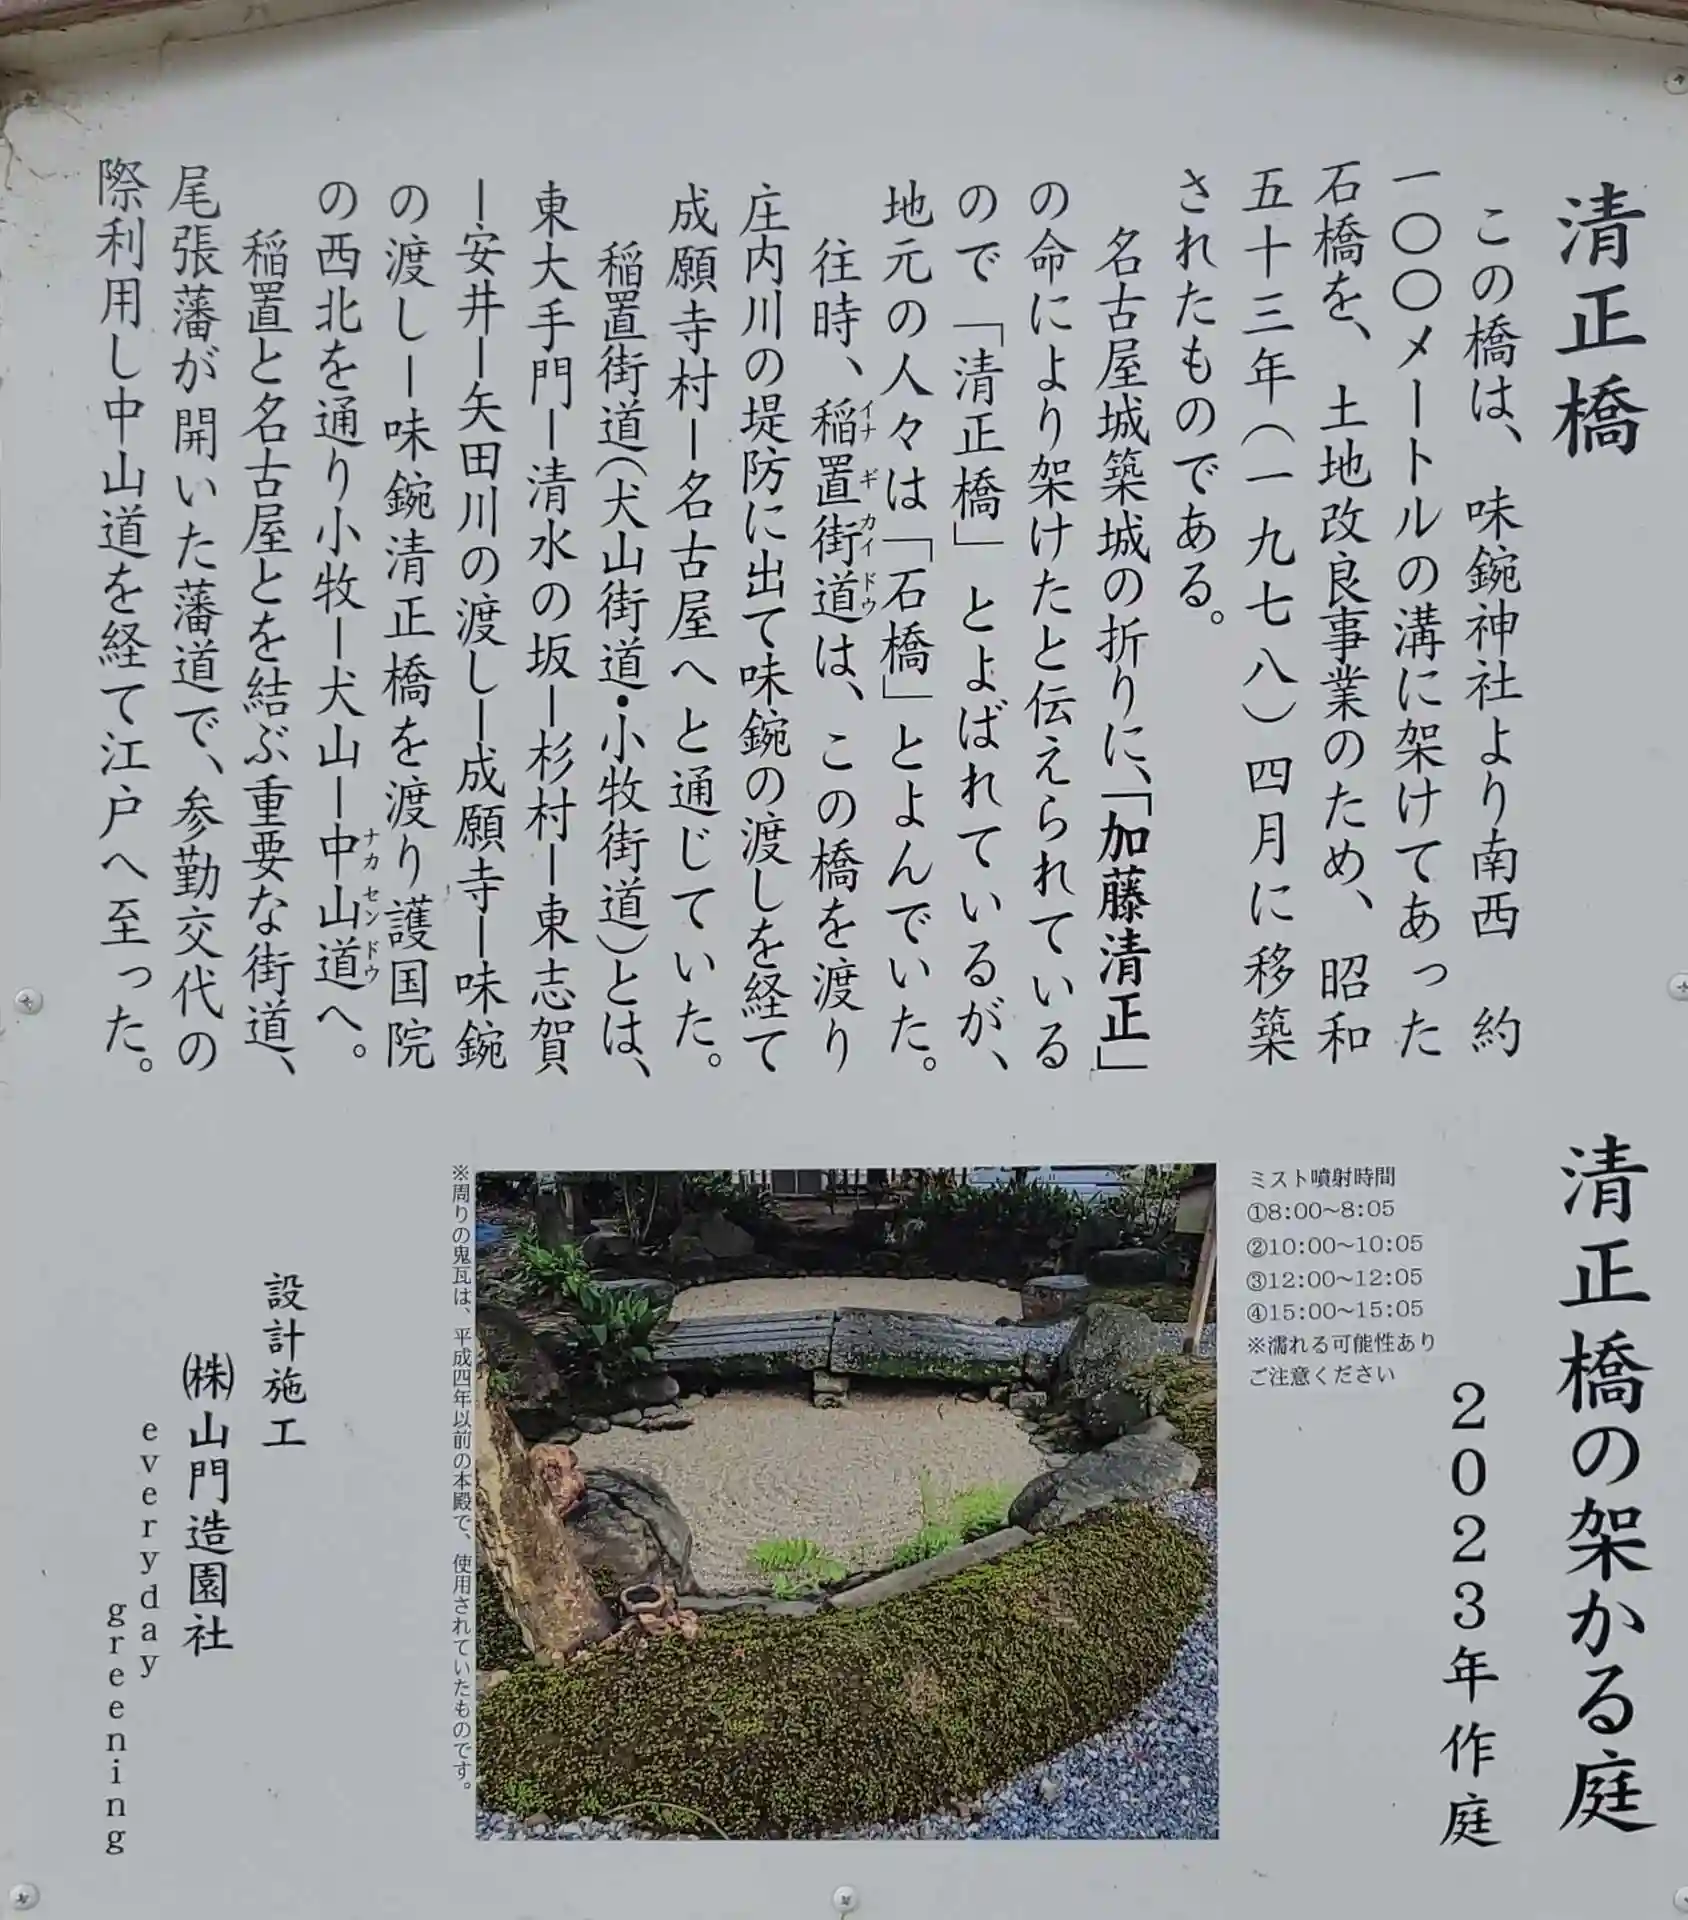 清正橋
この橋は、味鋺神社より南西 約
一〇〇メートルの溝に架けてあった
石橋を、土地改良事業のため、昭和
五十三年(一九七八)四月に移築
されたものである。
名古屋城築城の折りに、「加藤清正」
の命により架けたと伝えられている
ので「清正橋」とよばれているが、
地元の人々は「石橋」とよんでいた。
往時、稲置街道は、この橋を渡り
イナ ギ カイ ドウ
庄内川の堤防に出て味鋺の渡しを経て
成願寺村ー名古屋へと通じていた。
稲置街道(犬山街道・小牧街道)とは、
東大手門ー清水の坂ー杉村ー東志賀
ー安井ー矢田川の渡しー成願寺ー味鋺
の渡しー味鋺清正橋を渡り護国院
の西北を通り小牧ー犬山ー中山道へ。
ナカ セン ドウ
稲置と名古屋とを結ぶ重要な街道、
尾張藩が開いた藩道で、参勤交代の
際利用し中山道を経て江戸へ至った。
清正橋の架かる庭
2023年作庭
ミスト噴射時間
①8:00～8:05
②10:00～10:05
③12:00～12:05
④15:00～15:05
※濡れる可能性あり
ご注意ください
※周りの鬼瓦は、平成四年以前の本殿で、使用されていたものです。
設計施工
㈱山門造園社
everyday
greening